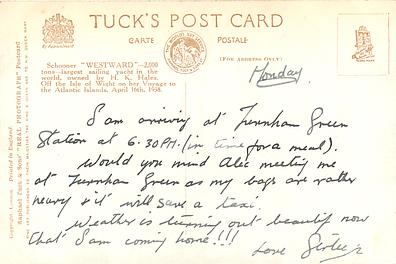 TUCK'S POST CARD
CARTE
POSTALE
By Appointment
(FOR ADDRESS ONLY)
Schooner "WESTWARD"—2,000
tons—largest sailing yacht in the
world, owned by H. K. Hales.
Off the Isle of Wight on her Voyage to
the Atlantic Islands, April 16th,
Monday.
I am arriving at Turnham Green
Station at 6.30 P.M. (in time for a meal).
Would you mind Alec meeting me
at Turnham Green as my bags are rather
heavy & it will save a taxi.
Weather is turning out beautiful now
that I am coming home!!!
Love
Copyright. London
Raphael Tuck & Sons' "REAL PHOTOGRAPH" Postcard
Printed in England